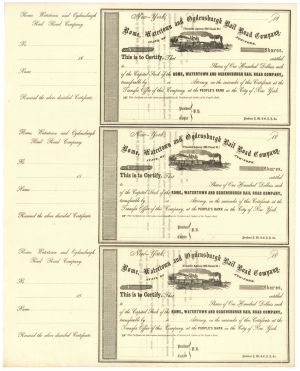 Rome, Watertown and Ogdensburgh
Rail Road Company.
No.
18
Name
Received the above described Certificate.
New-York 18
Rome, Watertown and Ogdensburgh Rail Road Company.
STATE OF NEW-YORK.
Shares.
This is to Certify, That
entitled
to Shares of One Hundred Dollars each
of the Capital Stock of the ROME, WATERTOWN AND OGDENSBURGH RAIL ROAD COMPANY,
transferable by Attorney, on the surrender of this Certificate at the
Transfer Office of this Company, at the PEOPLE'S BANK in the City of New York.
Rome, Watertown and Ogdensburgh
Rail Road Company.
No.
18
Name
Received the above described Certificate.
New-York 18
Rome, Watertown and Ogdensburgh Rail Road Company.
STATE OF NEW-YORK.
Shares.
This is to Certify, That
entitled
to Shares of One Hundred Dollars each
of the Capital Stock of the ROME, WATERTOWN AND OGDENSBURGH RAIL ROAD COMPANY,
transferable by Attorney, on the surrender of this Certificate at the
Transfer Office of this Company, at the PEOPLE'S BANK in the City of New York.
Rome, Watertown and Ogdensburgh
Rail Road Company.
No.
18
Name
Received the above described Certificate.
New-York 18
Rome, Watertown and Ogdensburgh Rail Road Company.
STATE OF NEW-YORK.
Shares.
This is to Certify, That
entitled
to Shares of One Hundred Dollars each
of the Capital Stock of the ROME, WATERTOWN AND OGDENSBURGH RAIL ROAD COMPANY,
transferable by Attorney, on the surrender of this Certificate at the
Transfer Office of this Company, at the PEOPLE'S BANK in the City of New York.